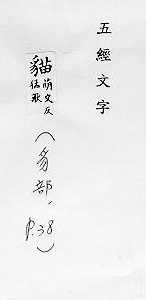 五經文字
貓
萌交反
猛獸
(豸部, p.38)